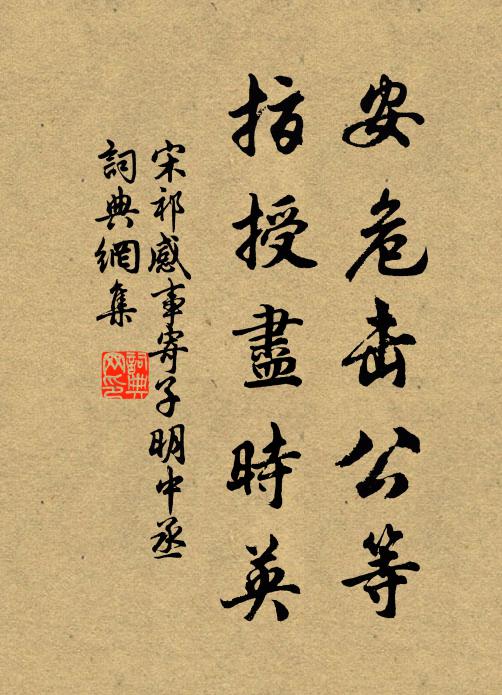 安危击公等
指授盡時英
宋祁感事寄子明中丞
詞典網集
詞典网印